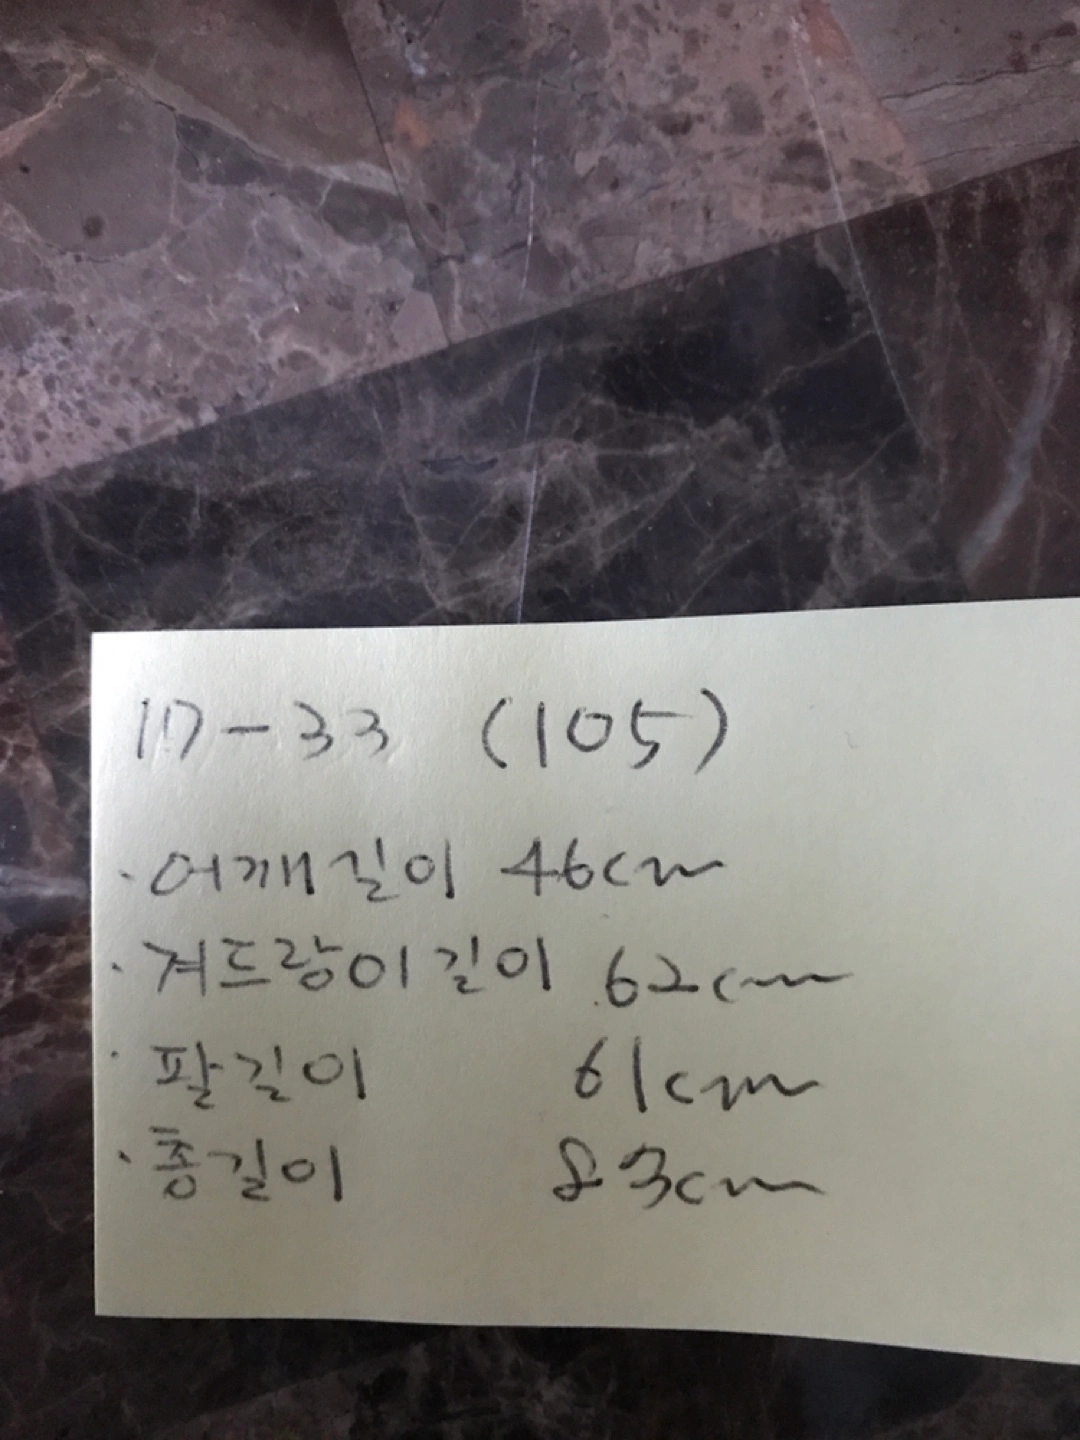 17-33 (105)
· 어깨길이 46cm
· 겨드랑이길이 62cm
· 팔길이 61cm
· 총길이 83cm